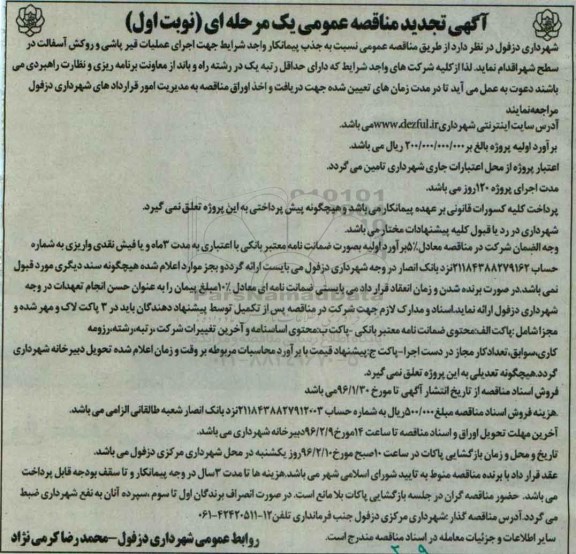 آگهی تجدید مناقصه عمومی یک مرحله ای (نوبت اول)
شهرداری دزفول در نظر دارد از طریق مناقصه عمومی نسبت به جذب پیمانکار واجد شرایط جهت اجرای عملیات قیر پاشی و روکش آسفالت در
سطح شهر اقدام نماید. لذا از کلیه شرکت های واجد شرایط که دارای حداقل رتبه یک در رشته راه و باند از معاونت برنامه ریزی و نظارت راهبردی می
باشند دعوت به عمل می آید تا در مدت زمان های تعیین شده جهت دریافت و اخذ اوراق مناقصه به مدیریت امور قراردادهای شهرداری دزفول
مراجعه نمایند
آدرس سایت اینترنتی شهرداری www.dezful.ir می باشد.
برآورد اولیه پروژه بالغ بر ۲۰۰/۰۰۰/۰۰۰/۰۰۰ ریال می باشد.
اعتبار پروژه از محل اعتبارات جاری شهرداری تامین می گردد.
مدت اجرای پروژه ۱۲۰ روز می باشد.
پرداخت کلیه کسورات قانونی بر عهده پیمانکار می باشد و هیچگونه پیش پرداختی به این پروژه تعلق نمی گیرد.
شهرداری در رد یا قبول کلیه پیشنهادات مختار می باشد.
وجه الضمان شرکت در مناقصه معادل ۵٪ برآورد اولیه بصورت ضمانت نامه معتبر بانکی با اعتباری به مدت ۳ ماه و یا فیش نقدی واریزی به شماره
حساب ۲۱۱۸۴۳۸۸۲۷۹۱۶۲ نزد بانک انصار در وجه شهرداری دزفول می بایست ارائه گردد و بجز موارد اعلام شده هیچگونه سند دیگری مورد قبول
نمی باشد. در صورت برنده شدن و زمان انعقاد قرارداد می بایستی ضمانت نامه ای معادل ۱۰٪ مبلغ پیمان را به عنوان حسن انجام تعهدات در وجه
شهرداری دزفول ارائه نماید. اسناد و مدارک لازم جهت شرکت در مناقصه پس از تکمیل توسط پیشنهاد دهندگان باید در ۳ پاکت لاک و مهر شده و
مجزا شامل: پاکت الف: محتوی ضمانت نامه معتبر بانکی - پاکت ب: محتوی اساسنامه و آخرین تغییرات شرکت، رتبه، رشته، رزومه
کاری، سوابق، تعداد کار مجاز در دست اجرا - پاکت ج: پیشنهاد قیمت با برآورد محاسبات مربوطه بر وقت و زمان اعلام شده تحویل دبیرخانه شهرداری
گردد. هیچگونه تعدیلی به این پروژه تعلق نمی گیرد.
فروش اسناد مناقصه از تاریخ انتشار آگهی تا مورخ ۹۶/۱/۳۰ می باشد
.هزینه فروش اسناد مناقصه مبلغ ۵۰۰/۰۰۰ ریال به شماره حساب ۲۱۱۸۴۳۸۸۲۷۹۱۲۰۰۳ نزد بانک انصار شعبه طالقانی الزامی می باشد.
آخرین مهلت تحویل اوراق و اسناد مناقصه تا ساعت ۱۴ مورخ ۹۶/۲/۹ دبیرخانه شهرداری می باشد.
تاریخ و محل و زمان بازگشایی پاکات در ساعت ۱۰ صبح مورخ ۹۶/۲/۱۰ روز یکشنبه در محل شهرداری مرکزی دزفول می باشد.
عقد قرارداد با برنده مناقصه منوط به تایید شورای اسلامی شهر می باشد. هزینه ها تا مدت ۳ سال در وجه پیمانکار و تا سقف بودجه قابل پرداخت
می باشد. حضور مناقصه گران در جلسه بازگشایی پاکات بلامانع است. در صورت انصراف برندگان اول تا سوم، سپرده آنان به نفع شهرداری ضبط
می گردد. آدرس مناقصه گذار: شهرداری مرکزی دزفول جنب فرمانداری تلفن ۱۲-۴۲۴۲۰۵۱۱-۰۶۱
سایر اطلاعات و جزئیات معامله در اسناد مناقصه مندرج است.
روابط عمومی شهرداری دزفول - محمدرضا کرمی نژاد